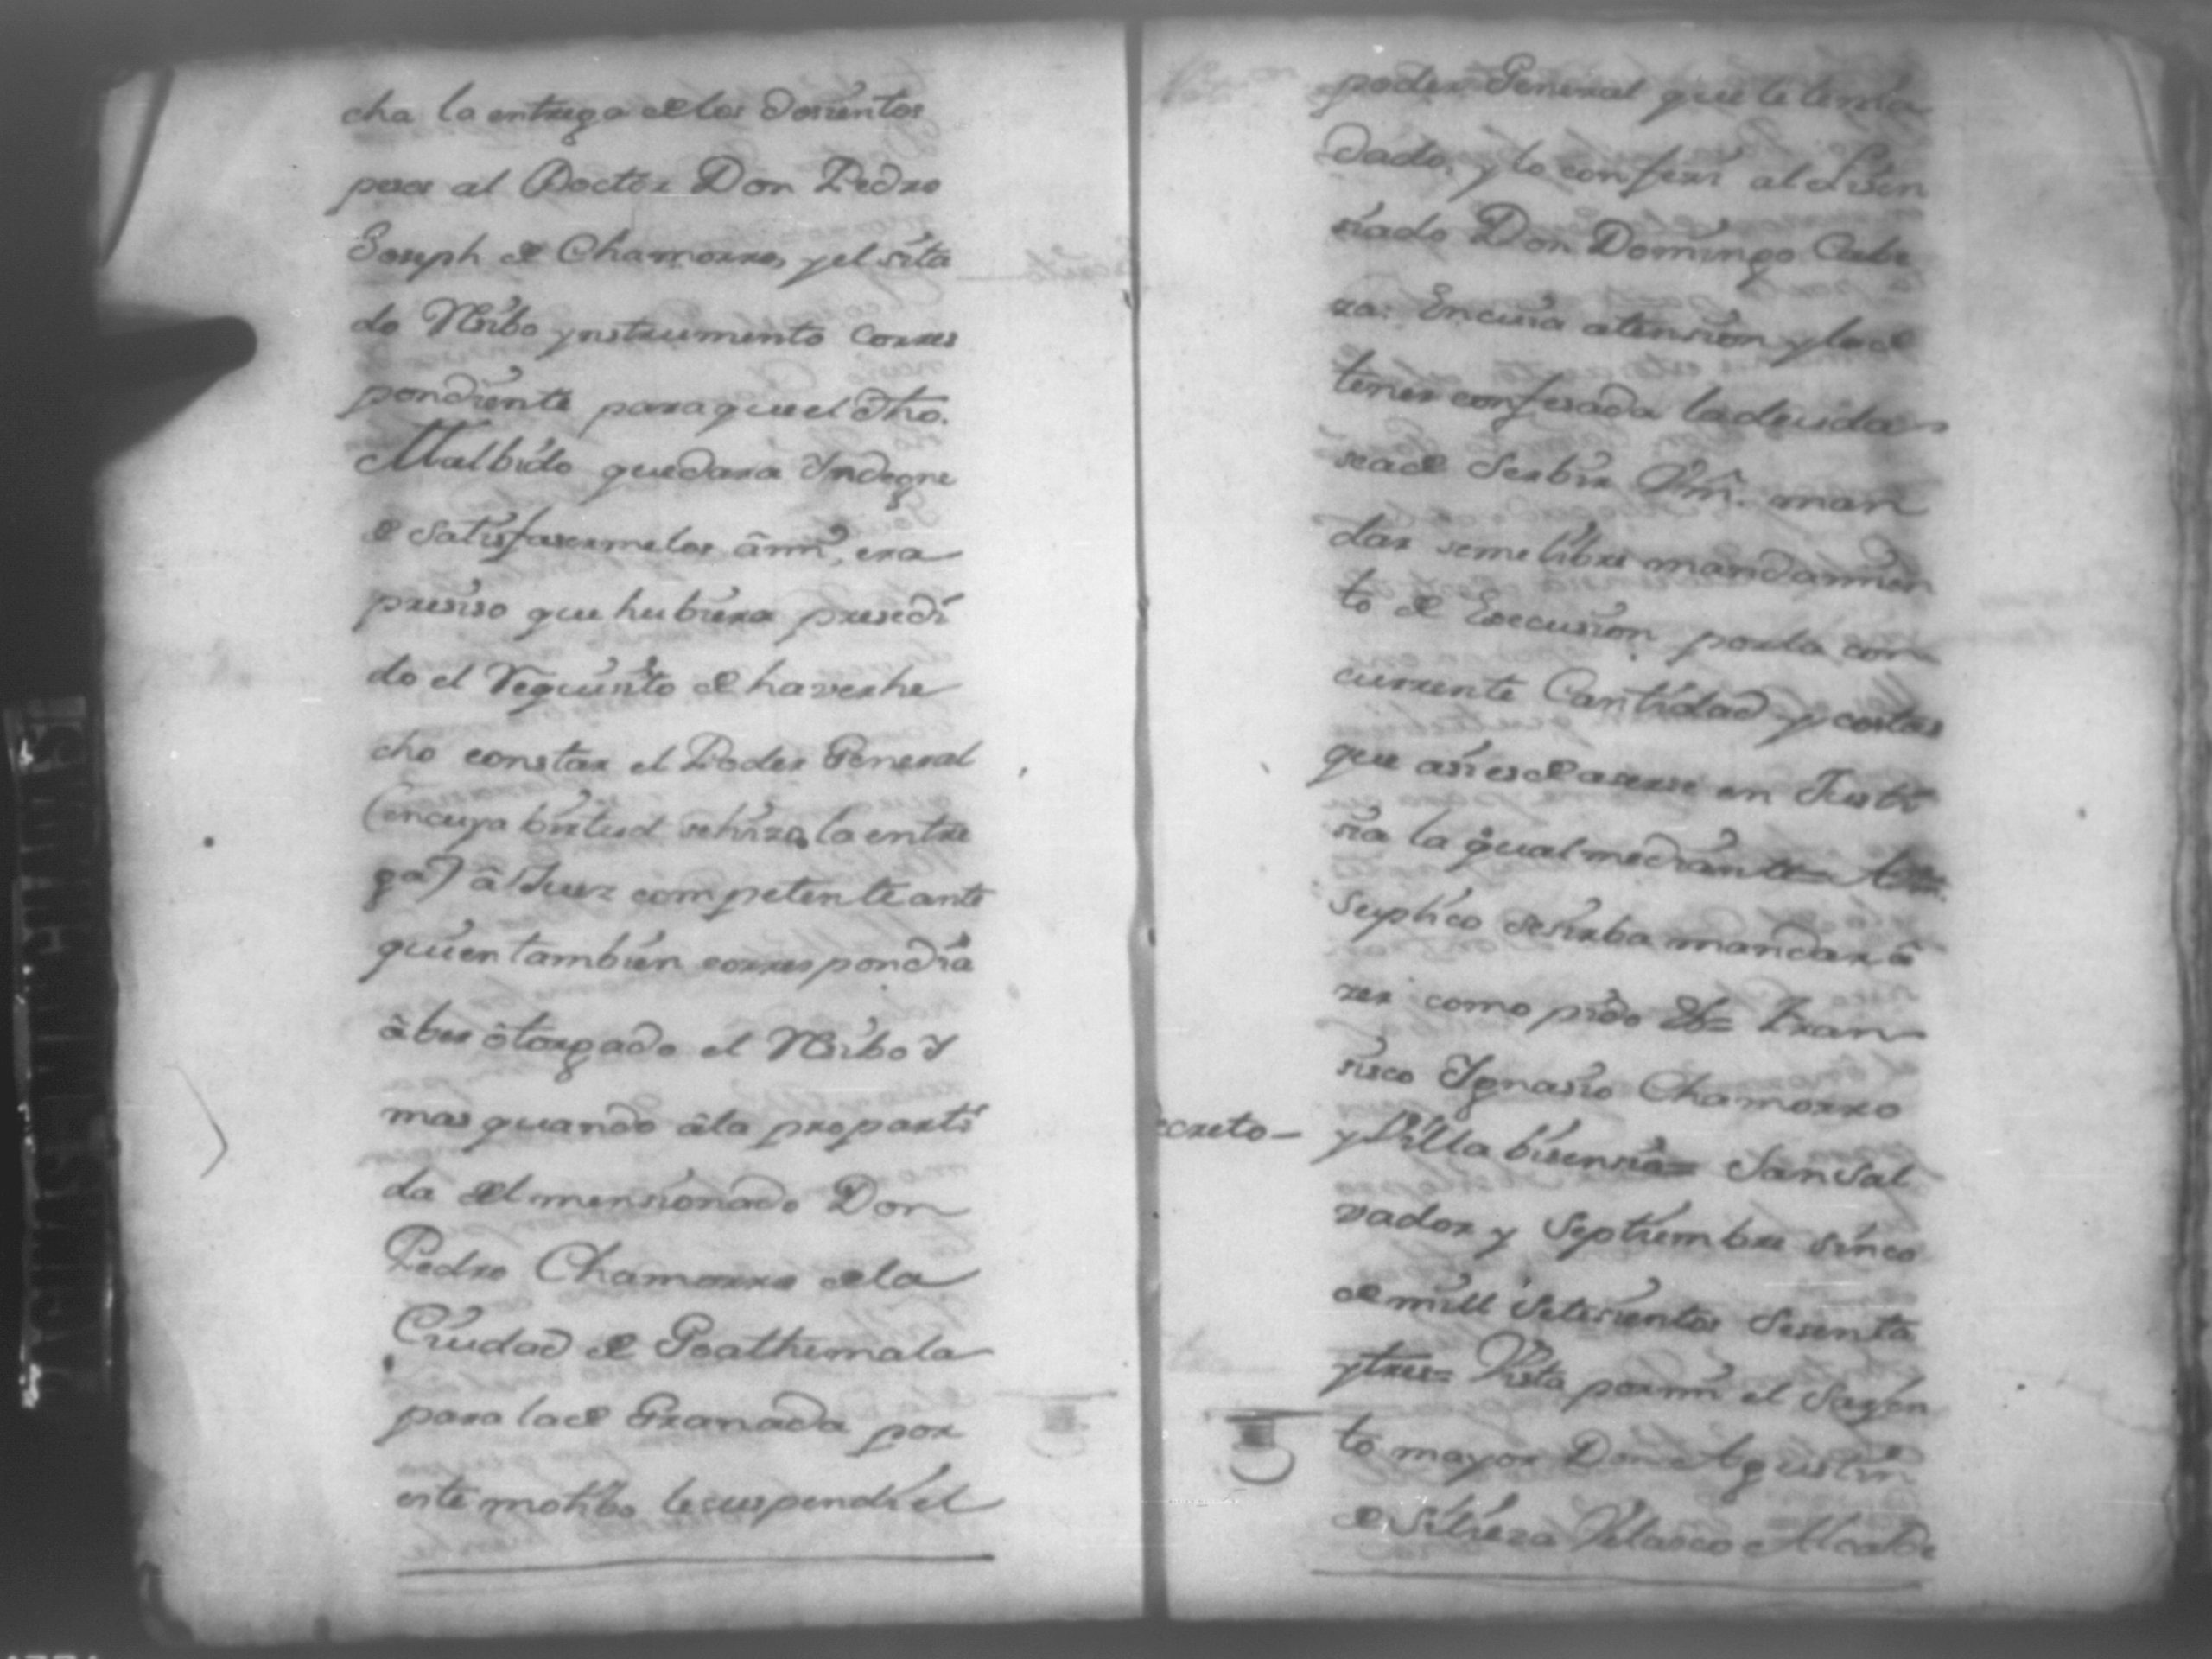 cha la entrega de los dosientos
pesos al Doctor Don Pedro
Joseph de Chamorro, y el sita
do Resibo ynstrumento corres
pondiente para que el dho.
Malbido quedara Indegne
de satisfasermelos â mi, era
presiso que hubiera presedi
do el requisito de haverhe
cho constar el Poder General
(en cuya birtud se hizo la entre
ga) â Juez competente ante
quien tambien correspondia
âber ôtorgado el Resibo Y
mas quando âla proparti
da del mensionado Don
Pedro Chamorro de la
Ciudad de Goathemala
para la de Granada por
este motibo le suspendi el
poder General que le tenia
dado, y lo conferi al Lisen
siado Don Domingo Cabe
za: En cuia atension y la de
tener confesada la deuda
sea de Serbir Vm. man
dar se me libre mandamien
to de Execusion por la con
currente Cantidad y costas
que asi es de aserse en Justi
sia la qual mediante=
Suplico se sirba mandar â
ser como pido &= Fran
sisco Ygnasio Chamorro
ecreto— y Villa bisensio= San Sal
vador y Septiembre sinco
de mill setesientos sesenta
y tres= Vista por mi el Sargen
to mayor Don Agustin
de Silieza Velasco Alcalde